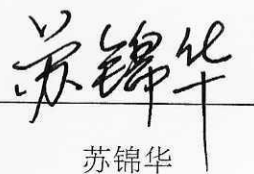 苏锦华
苏锦华